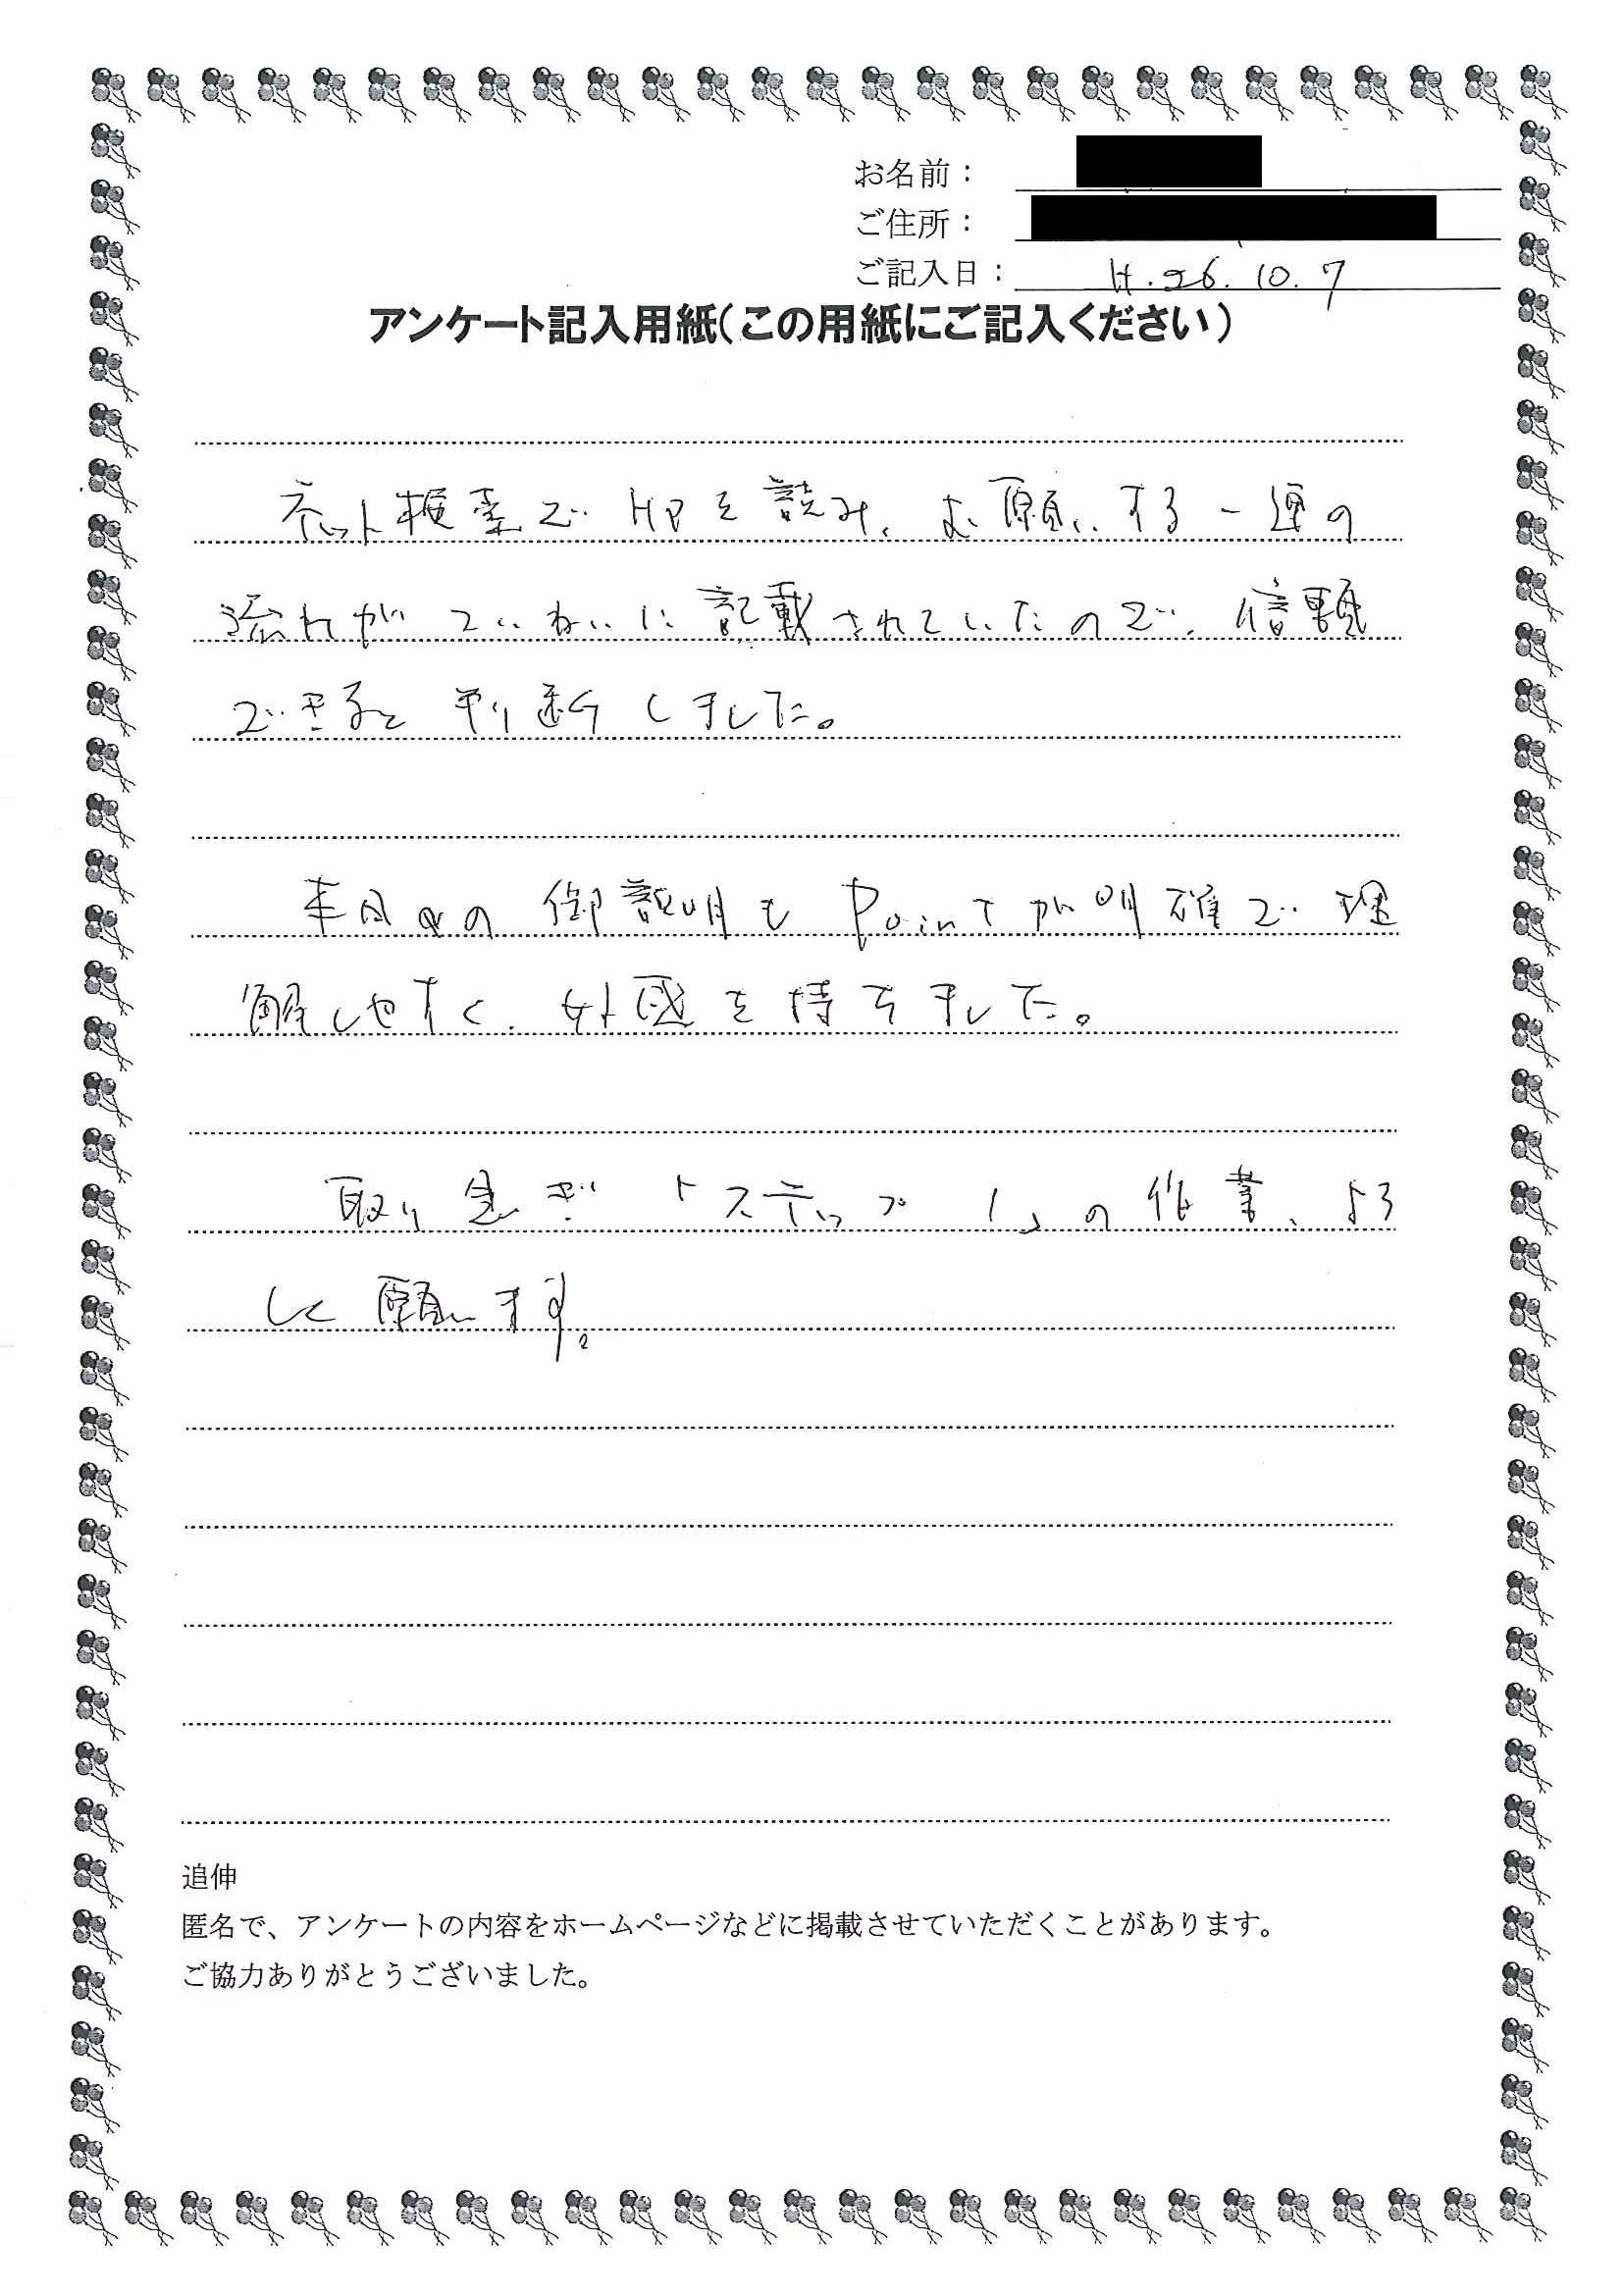 お名前：
ご住所：
ご記入日： H.26.10.7
アンケート記入用紙（この用紙にご記入ください）
ネット検索で HPを読み、お願いする一連の
流れがていねいに記載されていたので、信頼
できると判断しました。
本日の御説明もPointが明確で理
解しやすく、好感を持ちました。
取り急ぎ「ステップ1」の作業、よろ
しく願います。
追伸
匿名で、アンケートの内容をホームページなどに掲載させていただくことがあります。
ご協力ありがとうございました。